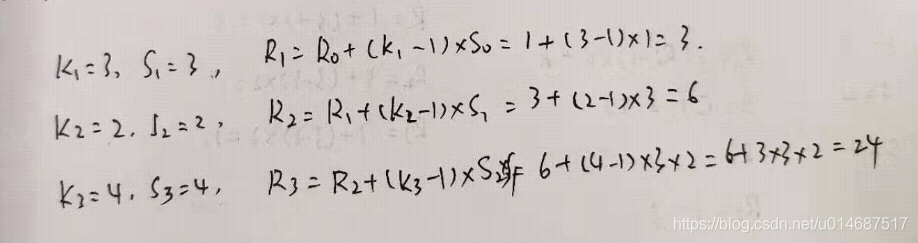 K₁=3, S₁=3, R₁=R₀+(k₁-1)×S₀=1+(3-1)×1=3.
K₂=2. S₂=2, R₂=R₁+(k₂-1)×S₁=3+(2-1)×3=6
K₃=4. S₃=4, R₃=R₂+(k₃-1)×S₂=6+(4-1)×3×2=6+3×3×2=24
https://blog.csdn.net/u014687517